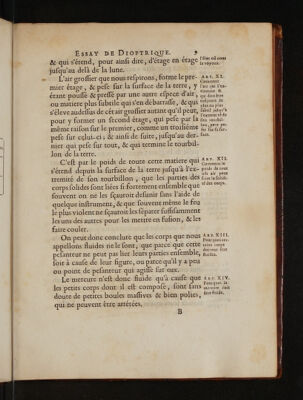 ESSAY DE DIOPTRIQUE. 9
& qui s'étend, pour ainsi dire, d'étage en étage
jusqu'au delà de la lune.
L'air grossier que nous respirons, forme le pre-
mier étage, & pese sur la surface de la terre, y
étant poussé & pressé par une autre espece d'air,
ou matiere plus subtile qui s'en débarrasse, & qui
s'éleve audessus de cet air grossier autant qu'il peut,
pour y former un second étage, qui pese par la
même raison sur le premier, comme un troisiéme
pese sur celui-ci, & ainsi de suite, jusqu'au der-
nier qui pese sur tout, & qui termine le tourbil-
lon de la terre.
C'est par le poids de toute cette matiere qui
s'étend depuis la surface de la terre jusqu'à l'ex-
tremité de son tourbillon, que les parties des
corps solides sont liées si fortement ensemble que
souvent on ne les sçauroit desunir sans l'aide de
quelque instrument, & que souvent même le feu
le plus violent ne sçauroit les séparer suffisamment
les uns des autres pour les mettre en fusion, & les
faire couler.
On peut donc conclure que les corps que nous
appellons fluides ne le sont, que parce que cette
pesanteur ne peut pas lier leurs parties ensemble,
soit à cause de leur figure, ou parce qu'il y a peu
ou point de pesanteur qui agisse sur eux.
Le mercure n'est donc fluide qu'à cause que
les petits corps dont il est composé, sont sans
doute de petites boules massives & bien polies,
qui ne peuvent être arrêtées.
B
ART. XI.
ART. XII.
Comment le
poids de tout
cet air peut
faire la solidité
des corps.
ART. XIII.
Pourquoi cer-
tains corps
doivent être
fluides.
ART. XIV.
Pourquoi le
mercure doit
être fluide.